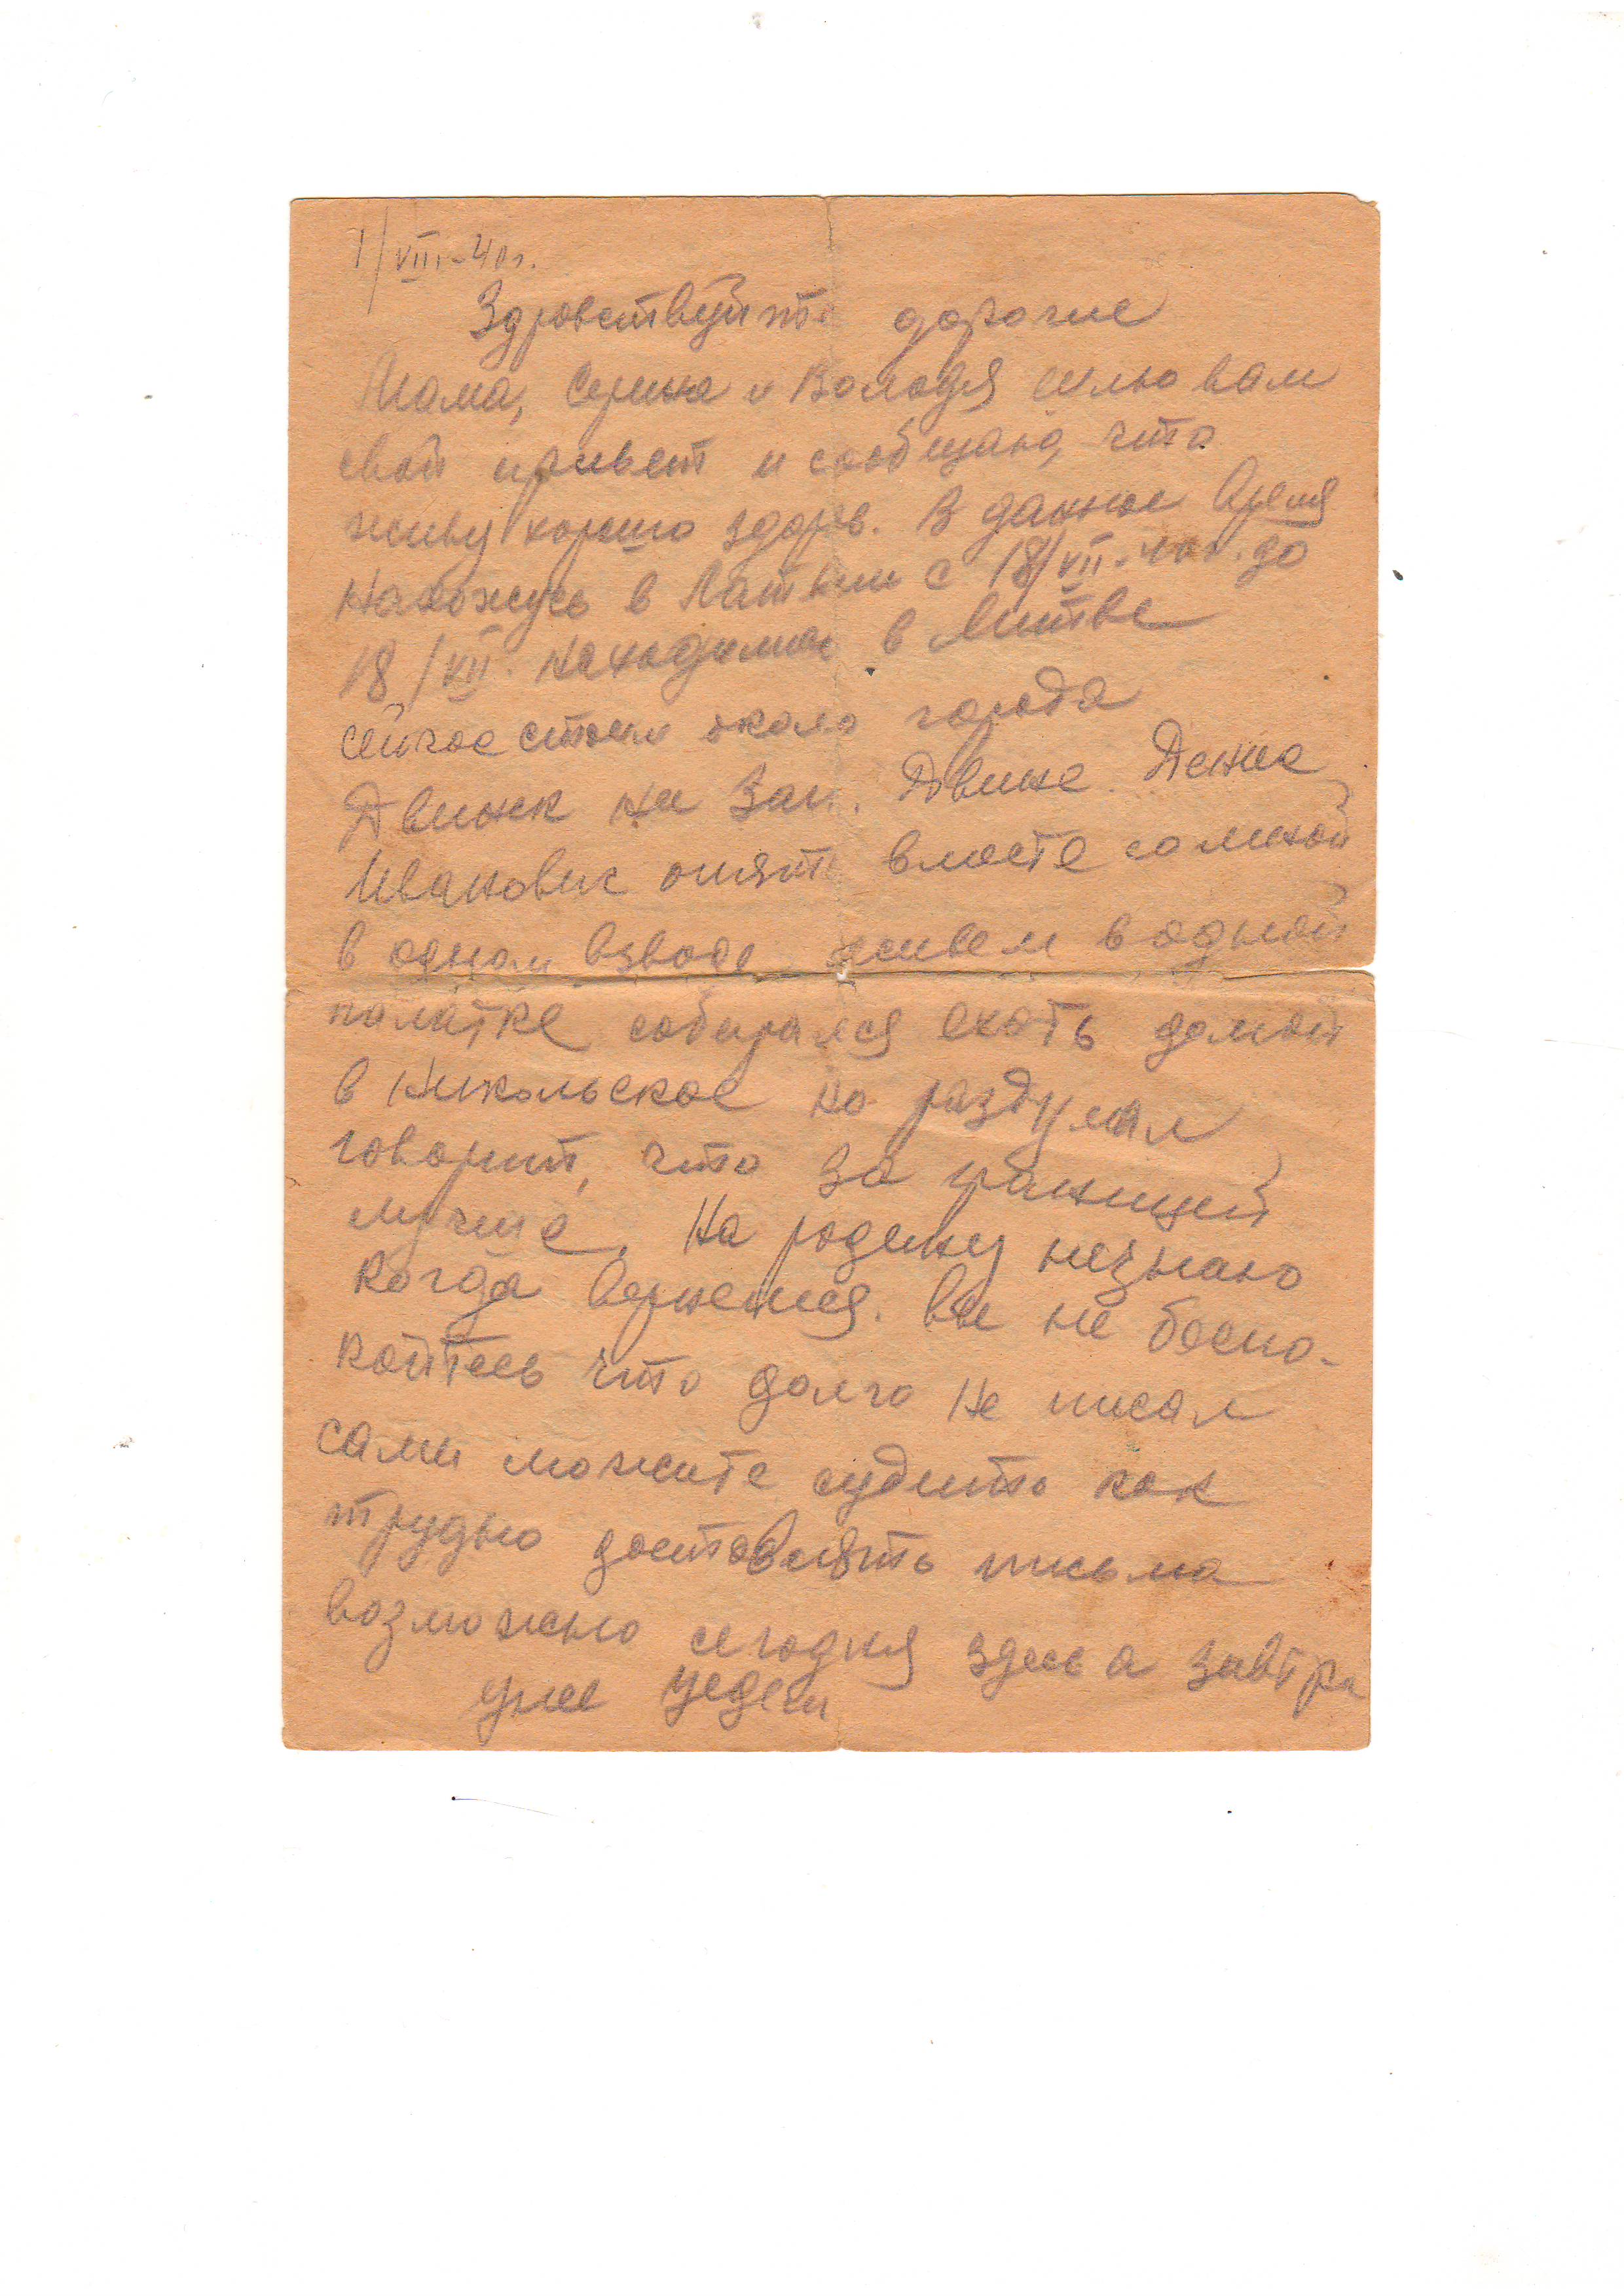 1/VIII-40г.
Здровствуйте дорогие
Мама, Сержа и Володя шлю вам
свой привет и сообщаю, что
живу хорошо здоров. В данное время
нахожусь в Латвии с 18/VII-40г. до
18/VII. находимся в Литве
сейчас стоим около города
Двинск на Зап. Двине. Дениc
Иванович опять вместе со мной
в одном взводе живем в одной
палатке собирался ехать домой
в Никольское но раздумал
говорит, что за границей
лучше. На родину незнаю
когда вернемся. Вы не беспо-
койтесь что долго не писал
сами можите судить как
трудно доставлять письма
возможно сегодня здесь а завтра
уже уедем